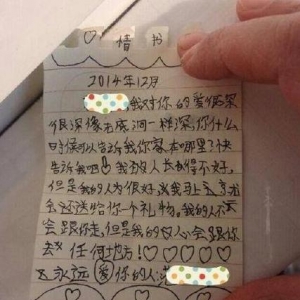 ♡情书
2014年12月
我对你的爱很深
很深像无底洞一样深,你什么
时候可以告诉我你家本哪里?快
告诉我吧!我的人长的得不好,
但是我的人为很好,
会还送给你一个礼物。我的人不
会跟你走,但是我的心会跟你
去 任何地方!♡♡♡♡♡
永远爱你的人: